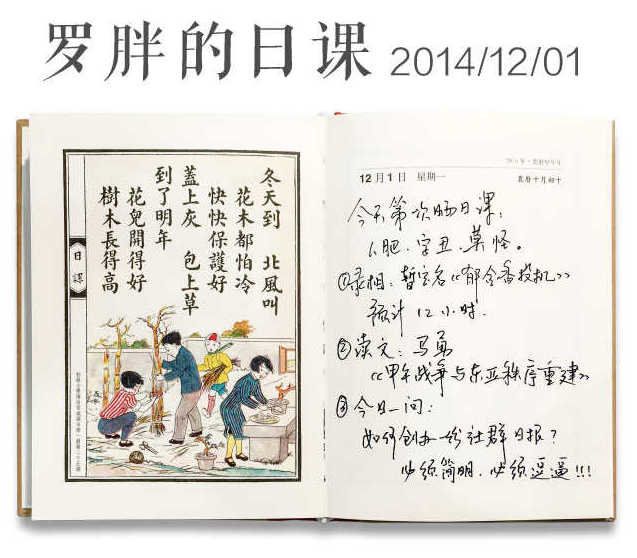 罗胖的日课 2014/12/01
冬天到 北風叫
花木都怕冷
快快保護好
蓋上灰 包上草
到了明年
花兒開得好
樹木長得高
日課
12月1日 星期一
農曆十月初十
今天第一次晒日课:
人胖、字丑、莫怪。
①录相:暂定名《郁金香投机》
预计12小时.
②读文:马勇
《甲午战争与东亚秩序重建》
③今日一问:
如何创办一份社群日报?
必须简明.必须逗逼!!!